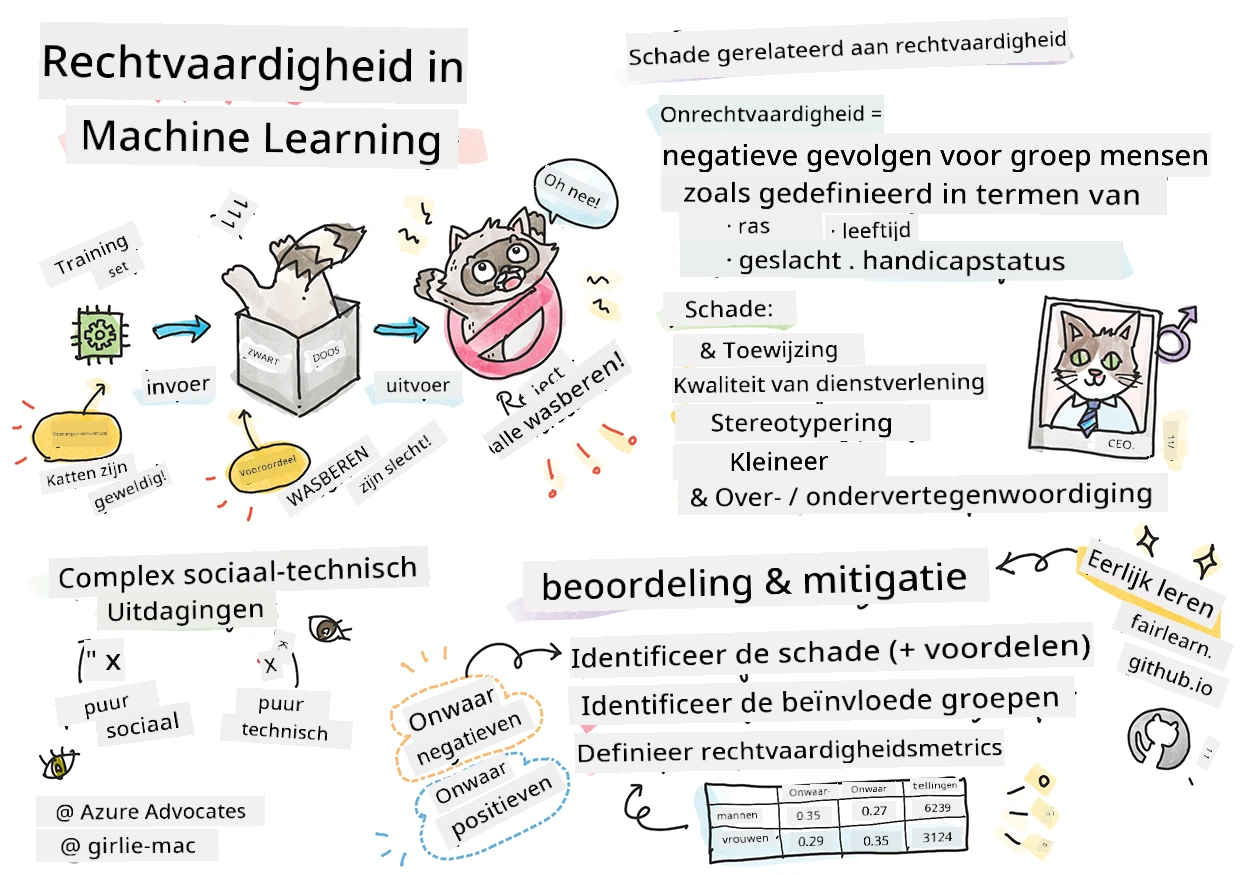 Rechtvaardigheid in
Machine Learning
Training
set
invoer
ZWART
DOOS
uitvoer
Oh nee!
alle wasberen!
Katten zijn
geweldig!
Vooroordeel
WASBEREN
zijn slecht!
Schade gerelateerd aan rechtvaardigheid
Onrechtvaardigheid =
negatieve gevolgen voor groep mensen
zoals gedefinieerd in termen van
· ras · leeftijd
· geslacht . handicapstatus
Schade:
& Toewijzing
Kwaliteit van dienstverlening
Stereotypering
Kleineer
& Over- / ondervertegenwoordiging
CEO.
Complex sociaal-technisch
Uitdagingen
" x
puur
sociaal
x
puur
technisch
@ Azure Advocates
@ girlie-mac
beoordeling & mitigatie
Eerlijk leren
fairlearn.
github.io
Identificeer de schade (+ voordelen)
Identificeer de beïnvloede groepen
Definieer rechtvaardigheidsmetrics
Onwaar
negatieven
Onwaar
positieven
Onwaar- Onwaar tellingen
mannen 0.35 0.27 6239
vrouwen 0.29 0.35 3124